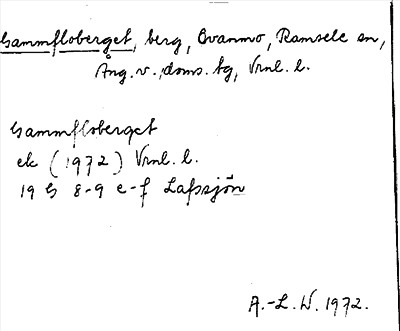 Gammfloberget, berg, Ovanmo, Ramsele sn,
Ång. v., doms. tg, Vrnl. l.
Gammfloberget
ek (1972) Vrnl. l.
19 G 8-9 e-f Lafssjön
A.-L. W. 1972.